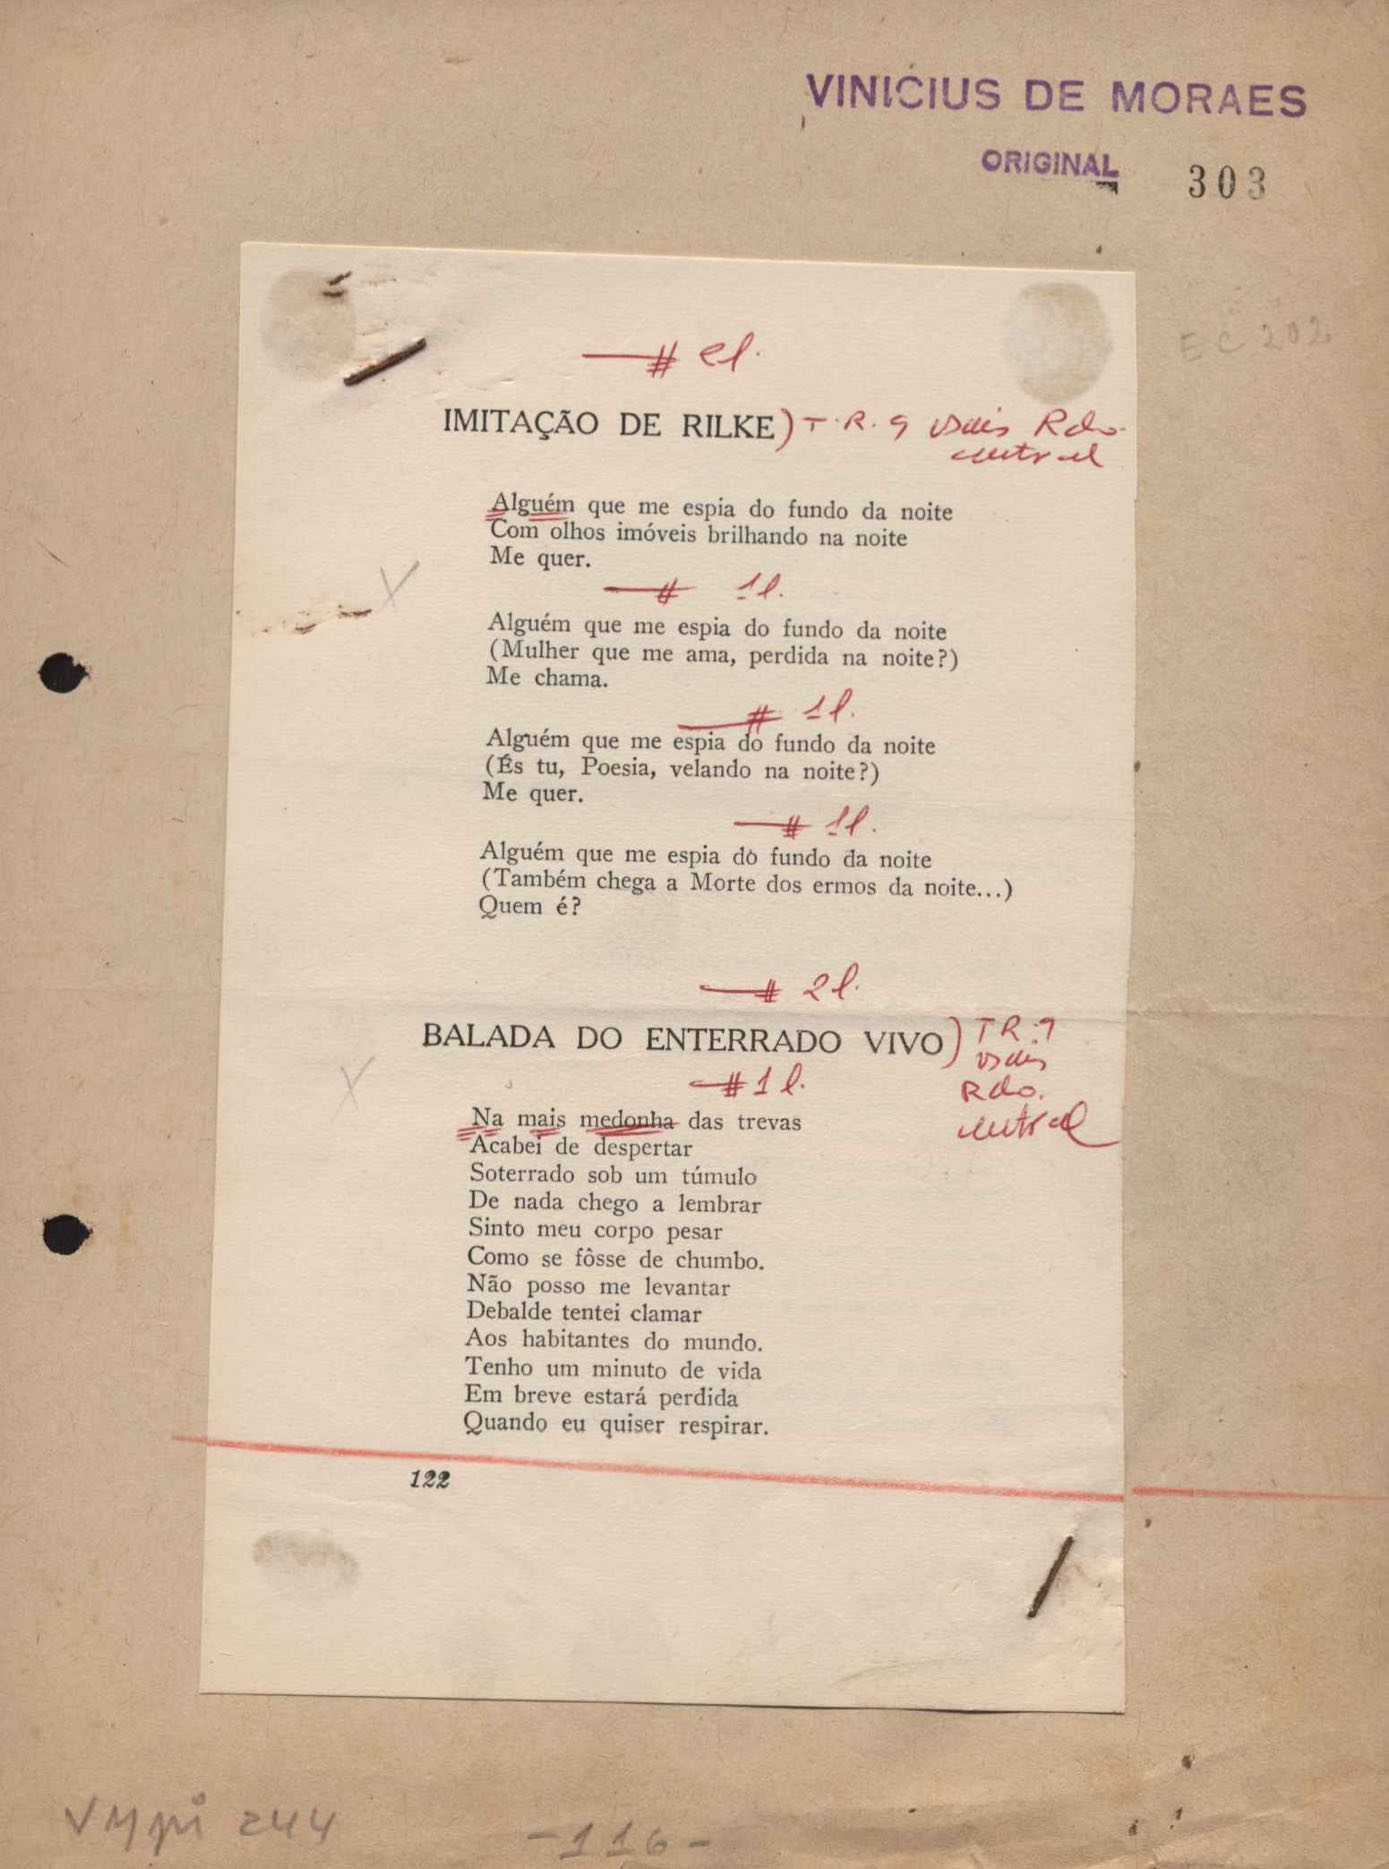 VINICIUS DE MORAES
ORIGINAL 303
EC 202
# el.
IMITAÇÃO DE RILKE) T.R. 9 Rdo.
central
Alguém que me espia do fundo da noite
Com olhos imóveis brilhando na noite
Me quer.
# 1l.
Alguém que me espia do fundo da noite
(Mulher que me ama, perdida na noite?)
Me chama.
# 1l.
Alguém que me espia do fundo da noite
(És tu, Poesia, velando na noite?)
Me quer.
# 1l.
Alguém que me espia do fundo da noite
(Também chega a Morte dos ermos da noite...)
Quem é?
# 2l.
BALADA DO ENTERRADO VIVO) TR.9
Rdo.
central
# 1l.
Na mais medonha das trevas
Acabei de despertar
Soterrado sob um túmulo
De nada chego a lembrar
Sinto meu corpo pesar
Como se fôsse de chumbo.
Não posso me levantar
Debalde tentei clamar
Aos habitantes do mundo.
Tenho um minuto de vida
Em breve estará perdida
Quando eu quiser respirar.
122
VMpi 244
-116-